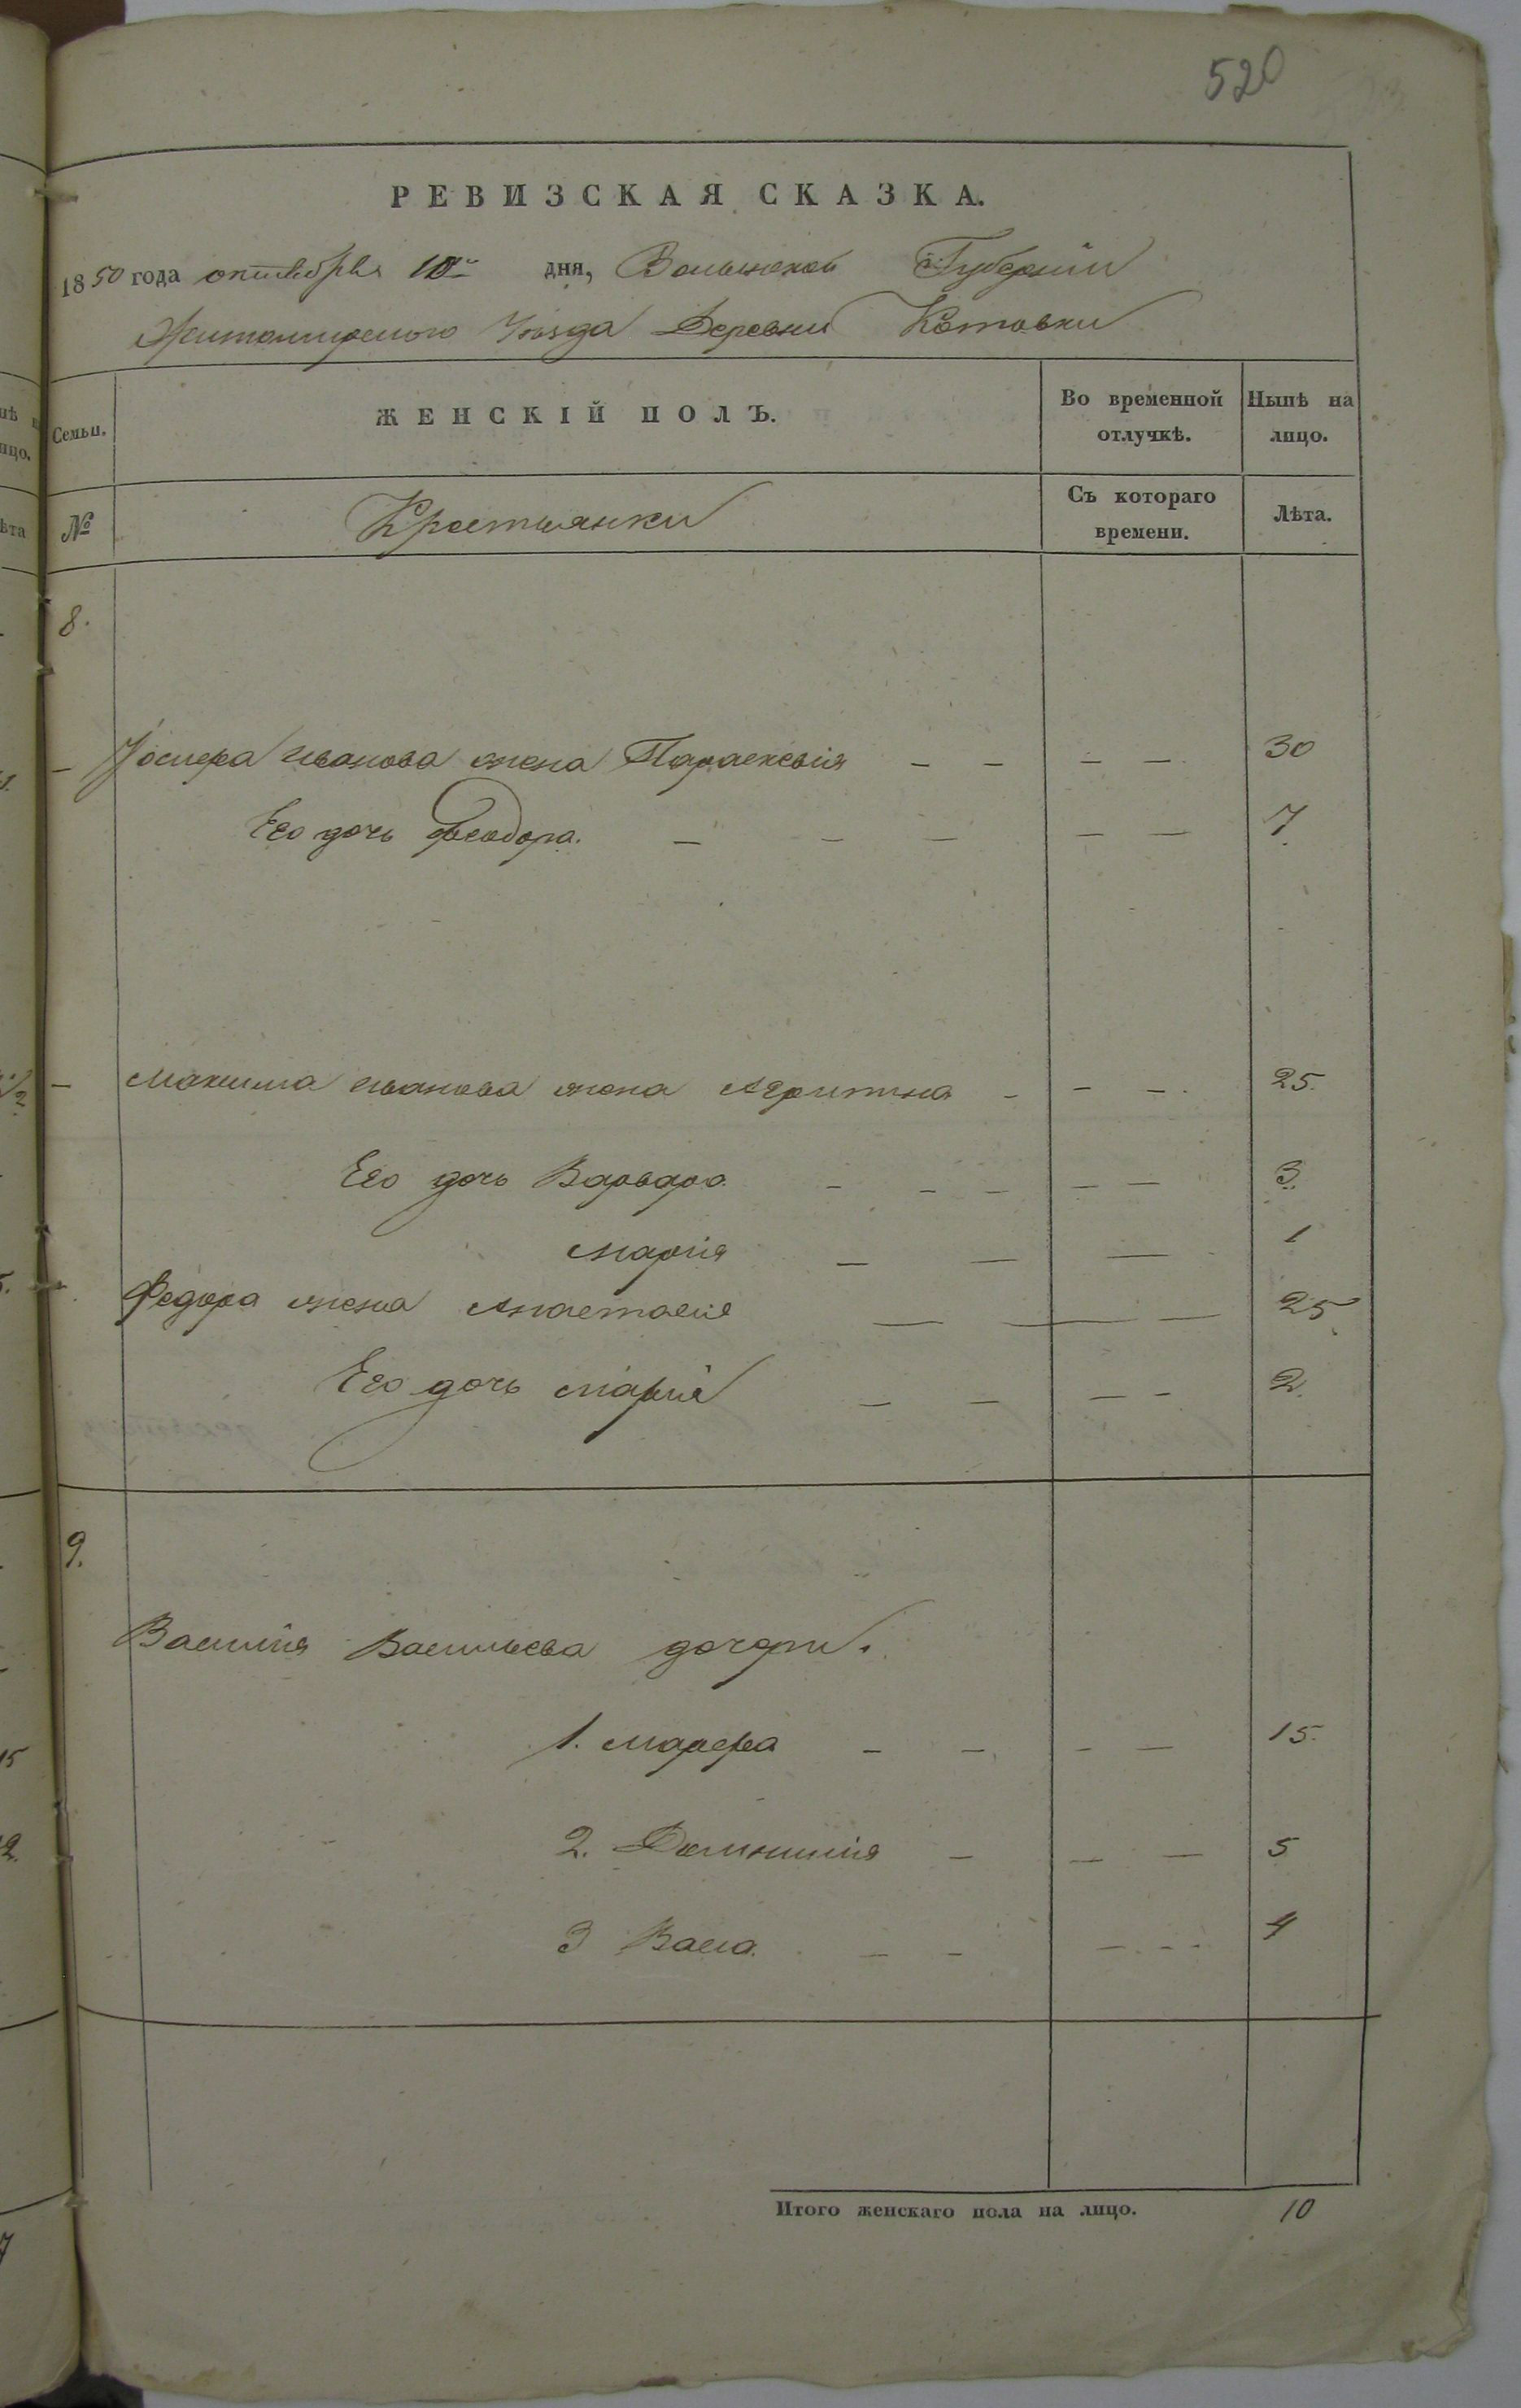 520
РЕВИЗСКАЯ СКАЗКА.
1850 года октября 10й дня, Волынской Губернии
Житомирского Уѣзда Деревни Котовки
Семьи.
ЖЕНСКІЙ ПОЛЪ.
Во временной отлучкѣ.
Нынѣ на лицо.
№
Крестьянки
Съ котораго времени.
Лѣта.
8.
Іосифа Иванова жена Параскевія — — — — 30
Его дочь Феодора. — — — — — 7.
Максима Иванова жена Агрипина — — — 25.
Его дочь Варвара — — — — — 3.
Марія — — — 1
Федора жена Анастасія — — — 25.
Его дочь Марія — — — — 2.
9.
Василія Васильева дочери.
1. Марфа — — — — 15.
2. Доминикія — — — 5
3 Васса — — — — — 4
Итого женскаго пола на лицо. 10